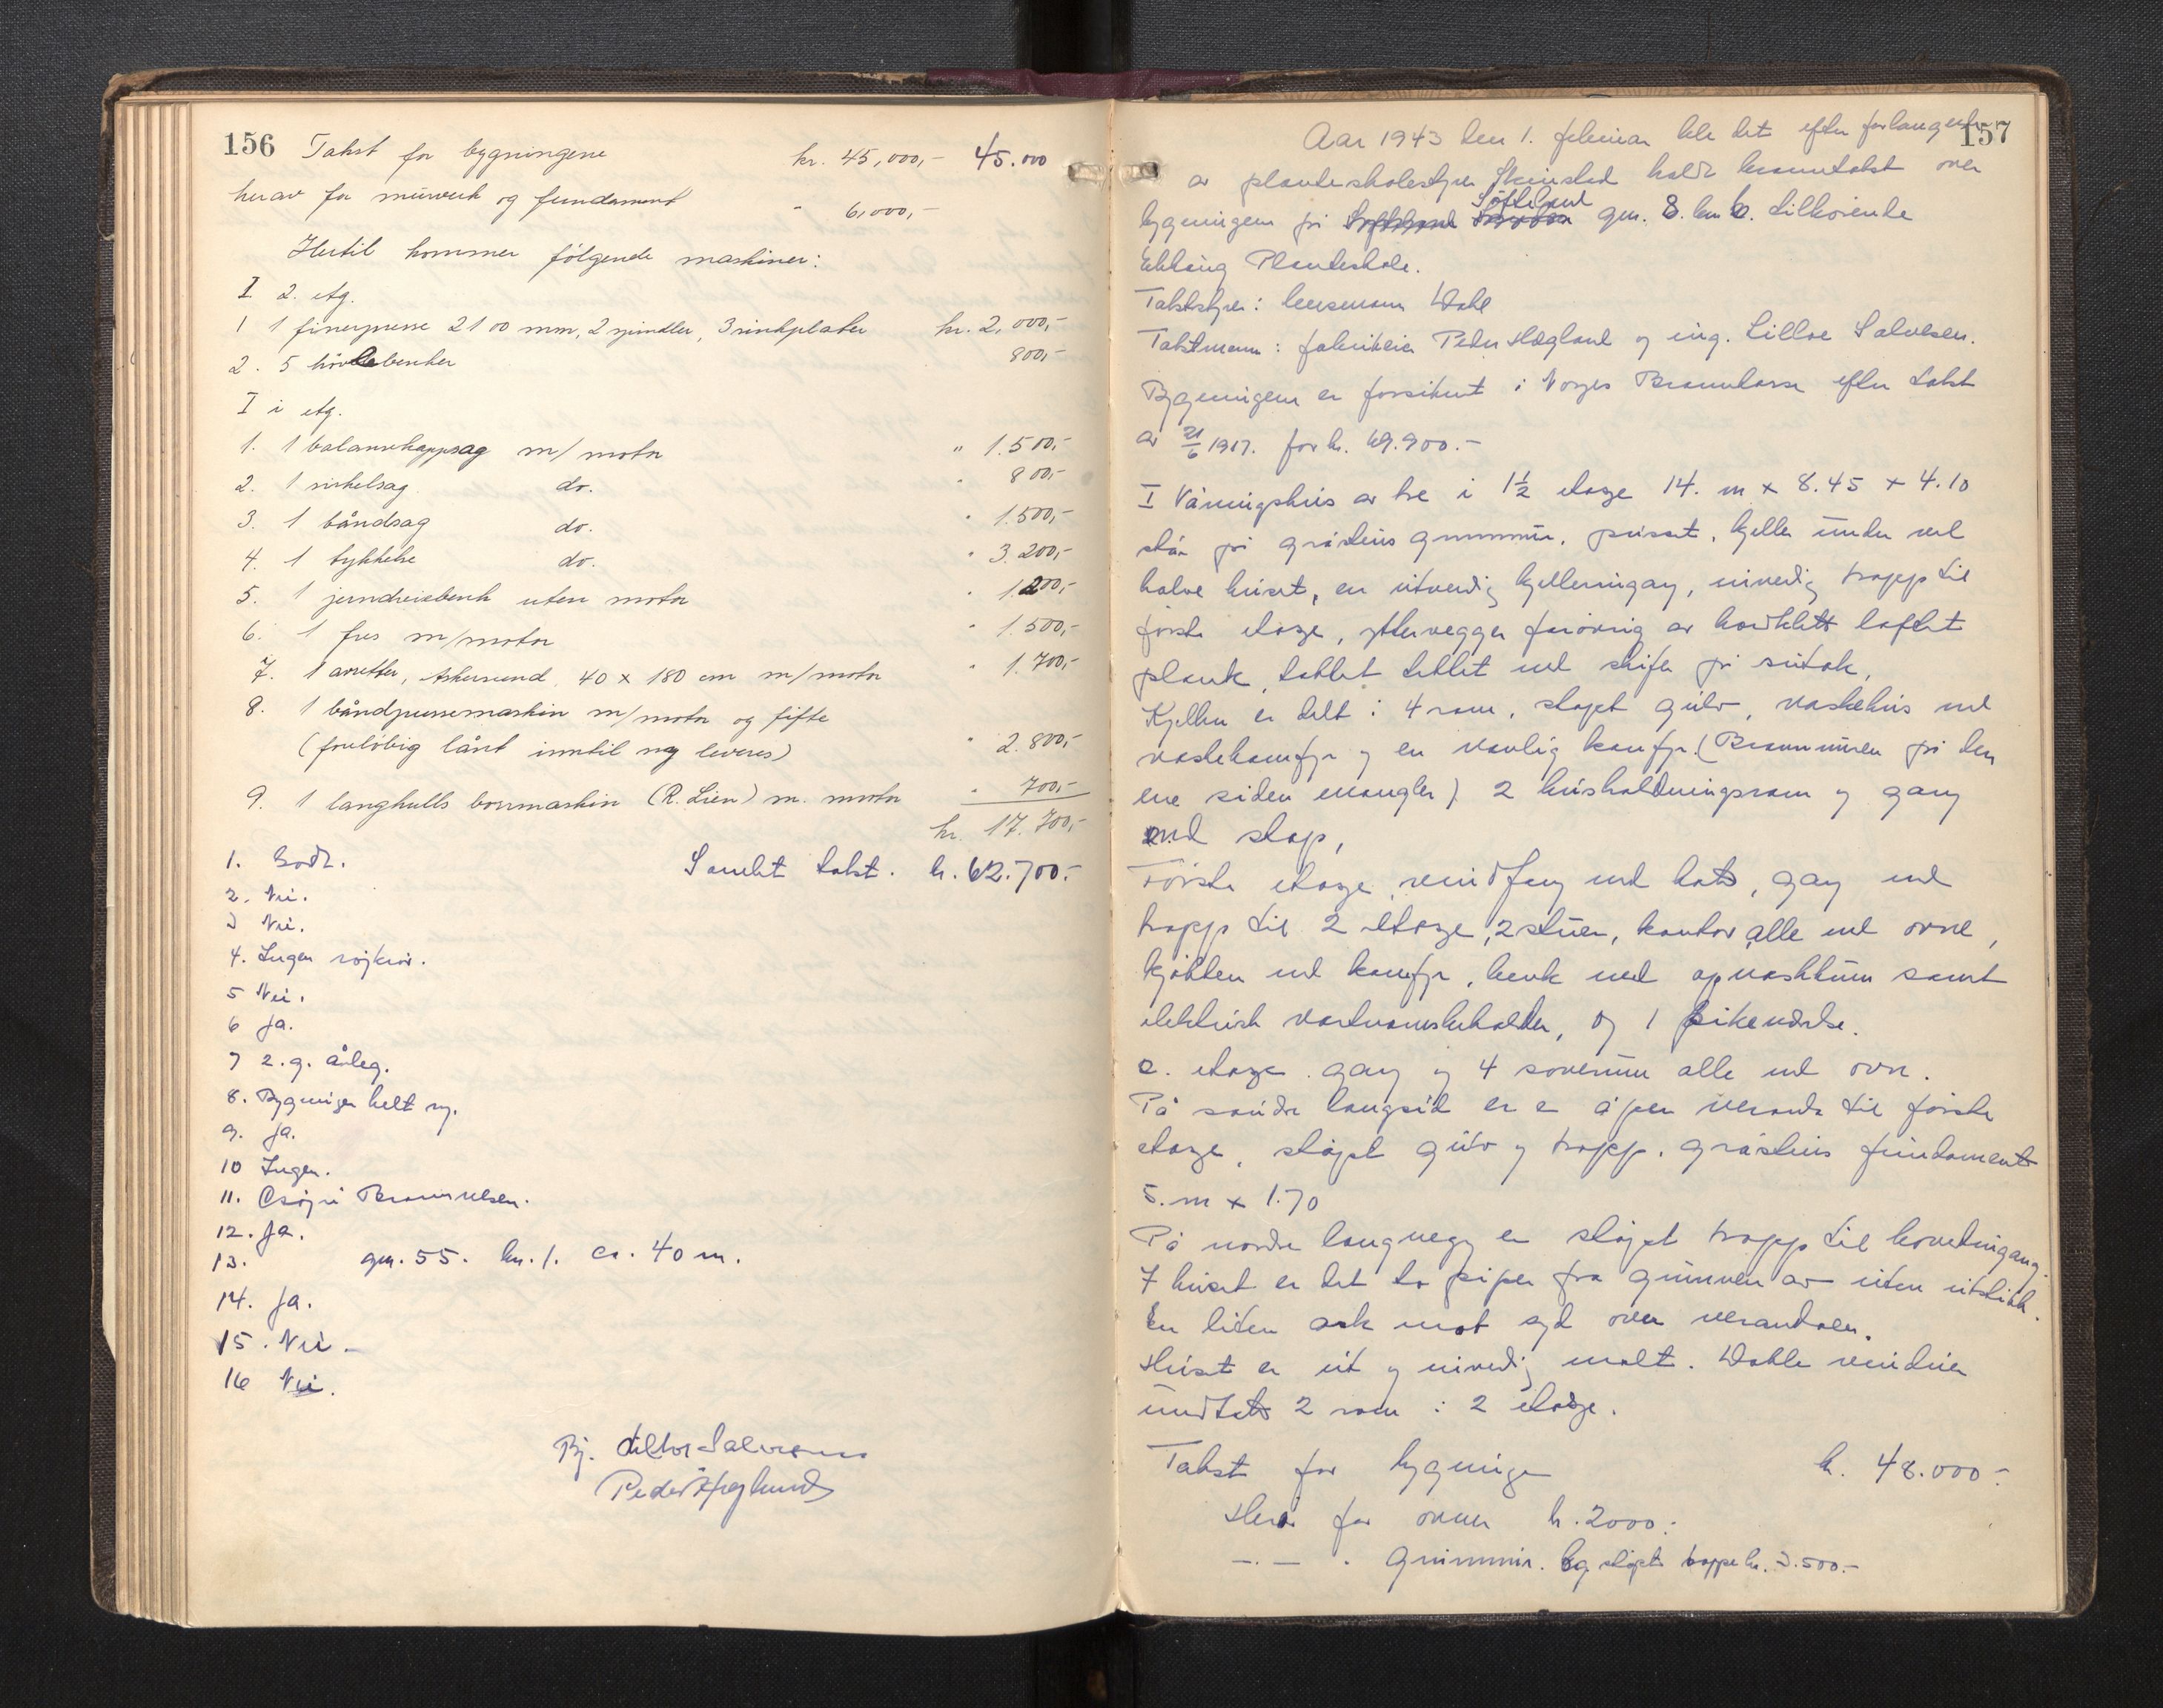 156
Takst for bygningene kr. 45,000,- 45.000
herav for murverk og fundament " 6,000,-
Hertil kommer følgende maskiner:
I 2. etg.
1 1 finerpresse 2100 mm, 2 spindler, 3 sinkplater kr. 2,000,-
2. 5 høvlebenker 800,-
I i etg.
1. 1 balansekappsag m/ motor " 1.500,-
2. 1 sirkelsag do. " 800,-
3. 1 båndsag do. " 1.500,-
4. 1 tykkelse do. " 3.200,-
5. 1 jerndreiebenk uten motor " 1.200,-
6. 1 fres m/motor " 1.500,-
7. 1 avretter, Askersund, 40 x 180 cm m/motor " 1.700,-
8. 1 båndpussemaskin m/motor og fifte
(foreløbig lånt inntil ny leveres) " 2.800,-
9. 1 langhulls borrmaskin (R. Lien) m. motor " 700,-
kr. 17.700,-
1. Godt. Samlet takst. kr. 62.700.-
2. Nei.
3 Nei.
4. Ingen røjkrør.
5 Nei.
6 Ja.
7 2.g. årleg.
8. Bygningen helt ny.
9. Ja.
10 Ingen.
11. Osøyri Brannvesen.
12. Ja.
13. gnr. 55. bnr. 1. ca. 40 m.
14. Ja.
15. Nei.
16 Nei.
Bj. Lilloe Salvesen
Peder Hægland
157
Aar 1943 den 1. februar ble det efter forlangende
av planteskolestyrer Skeinsted holdt branntakst over
bygningen på Søfteland gnr. 8. bnr. 6. tilhørende
Eikhaug Planteskole.
Takstbestyrer: lensmann Dahl
Takstmenn: fabrikeier Peder Hægland og ing. Lilloe Salvesen.
Bygningen er forsikret i Norges Brannkasse efter takst
av 21/6 1917. for kr. 49.900.-
I Våningshus av tre i 1½ etage 14. m x 8.45 x 4.10
står på gråsteins grunnmur, pusset, kjeller under vel
halve huset, en utvendig kjellerningang, innvendig trapp til
første etage, yttervegger forøvrig av bordkledt laftet
plank, taket tekket med skifer på sutak,
Kjelleren er delt i 4 rom, støpt gulv, vaskehus med
vaskekomfyr og en vanlig komfyr. (Brannmuren på den
ene siden mangler) 2 husholdningsrom og gang
med skap,
Første etage vindfang med kott, gang med
trapp til 2 etage, 2 stuer, kontor alle med ovne,
kjøkken med komfyr, benk med opvaskkum samt
elektrisk varmvannsbeholder, og 1 pikeværelse.
2. etage. gang og 4 soverum alle med ovn.
På søndre langside er en åpen veranda til første
etage, støpt gulv og trapp, gråsteins fundament
5. m x 1.70
På nordre langvegg er støpt trapp til hovedingang.
I huset er det to piper fra grunnen av uten utstikk.
En liten ark mot syd over verandaen.
Huset er ut og innvendig malt. Doble vinduer
undtatt 2 rom i 2 etage.
Takst for bygningen kr. 48.000.-
Herav for ovner kr. 2000.-
-.- " grunnmur. og støpte trapper kr. 3.500.-